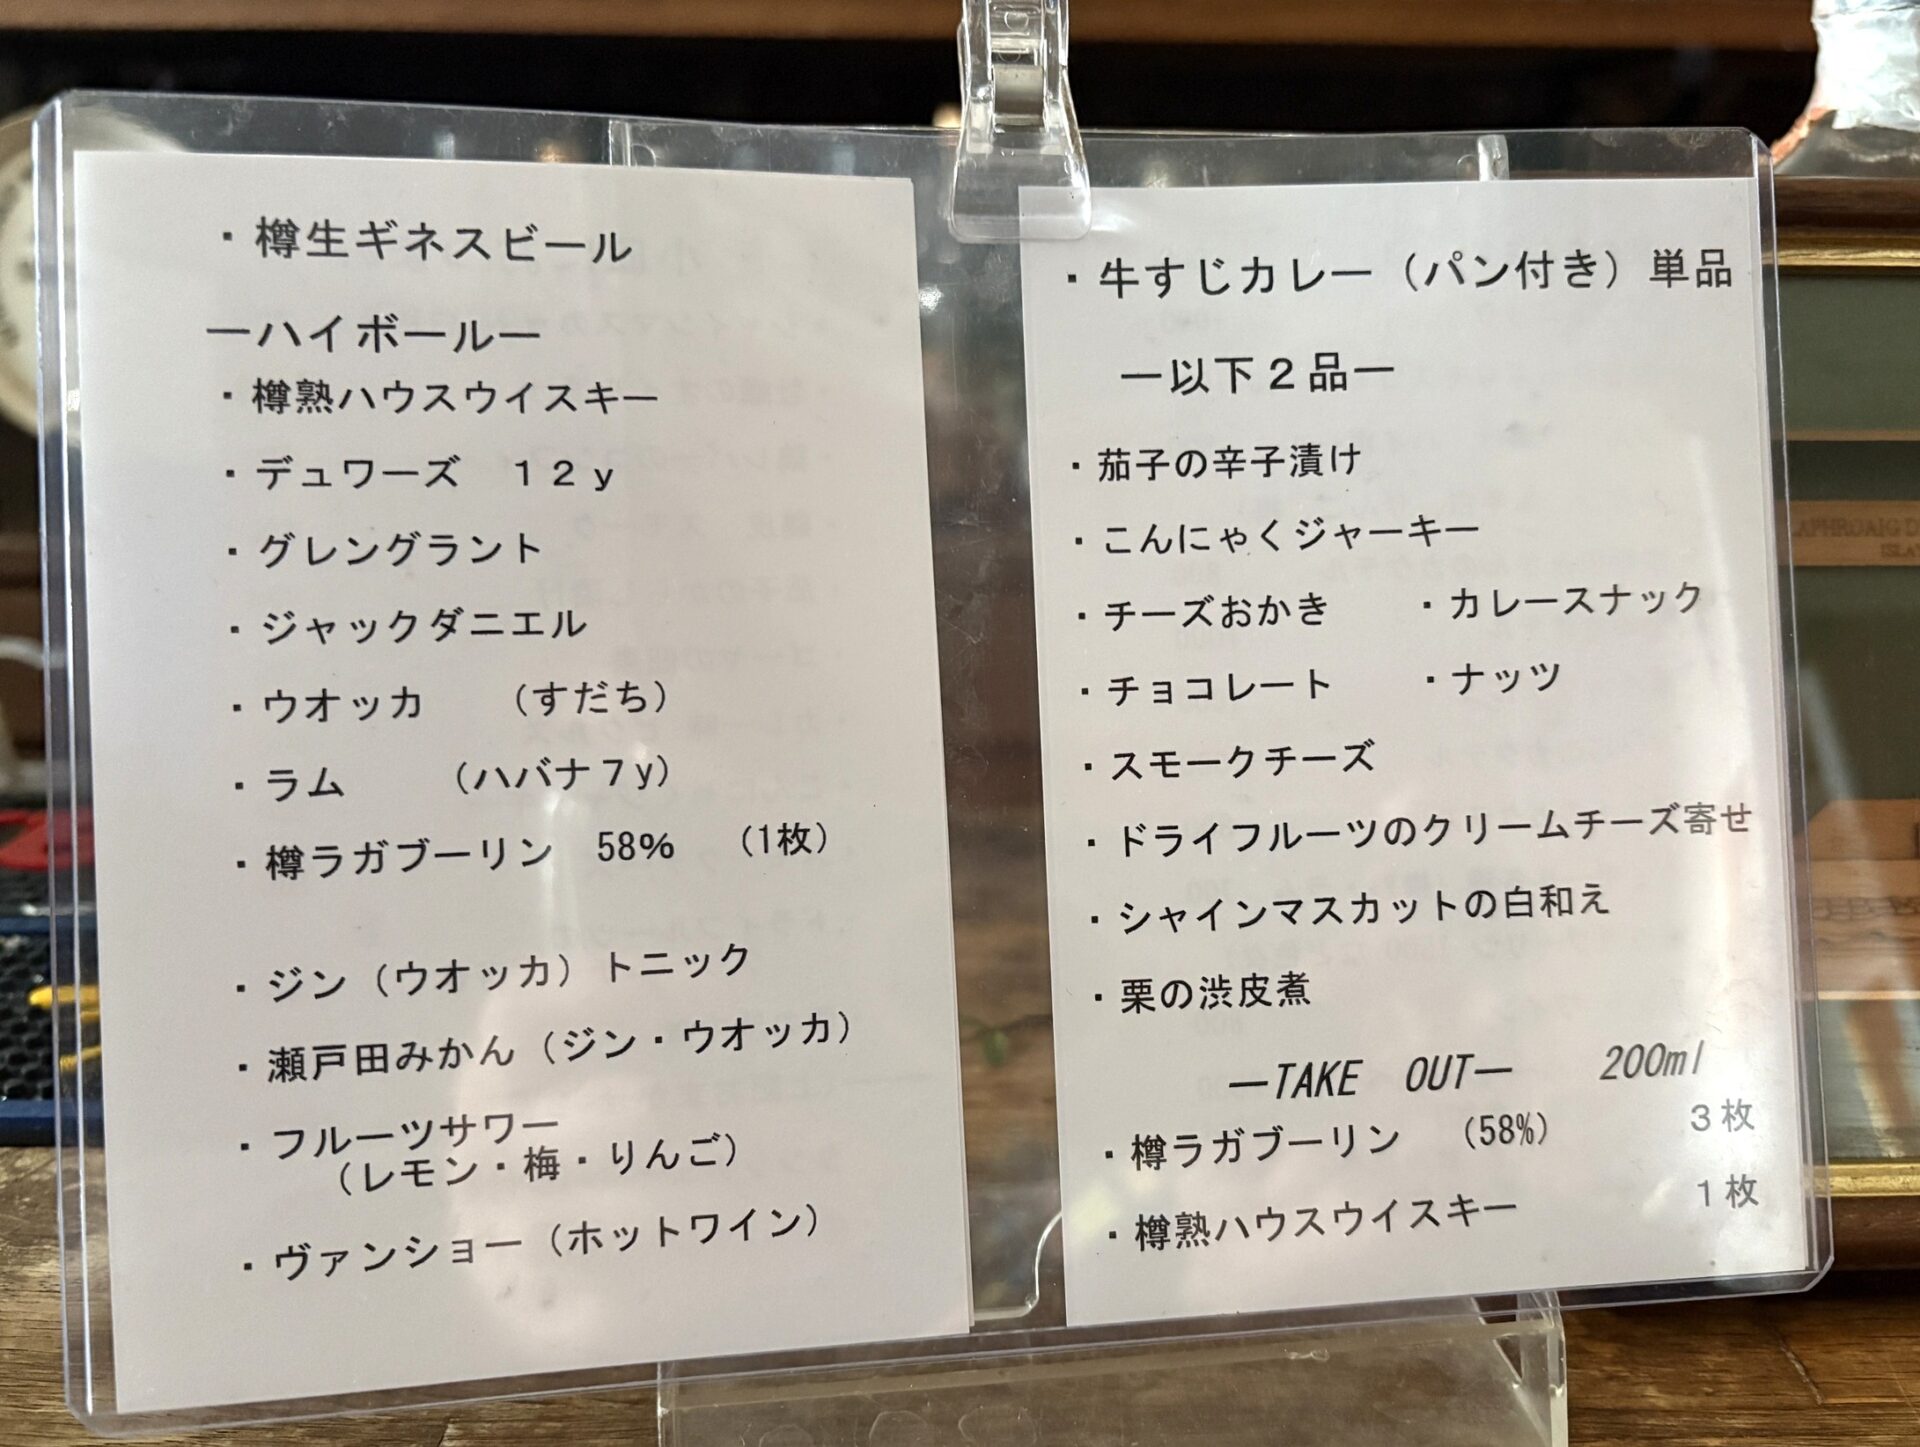 ・樽生ギネスビール
ーハイボールー
・樽熟ハウスウイスキー
・デュワーズ　１２ｙ
・グレングラント
・ジャックダニエル
・ウオッカ　　（すだち）
・ラム　　　（ハバナ７y）
・樽ラガブーリン　58%　（1枚）
・ジン（ウオッカ）トニック
・瀬戸田みかん（ジン・ウオッカ）
・フルーツサワー
（レモン・梅・りんご）
・ヴァンショー（ホットワイン）
・牛すじカレー（パン付き）単品
ー以下２品ー
・茄子の辛子漬け
・こんにゃくジャーキー
・チーズおかき　　・カレースナック
・チョコレート　　・ナッツ
・スモークチーズ
・ドライフルーツのクリームチーズ寄せ
・シャインマスカットの白和え
・栗の渋皮煮
―TAKE　OUT―　　200ml
・樽ラガブーリン　（58%）　　　３枚
・樽熟ハウスウイスキー　　　　１枚